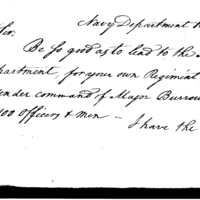 Navy Department
Sir,
Be so good as to lend to the
partment, for your own Regiment
under command of Major Burrow
00 Officers & men — I have the